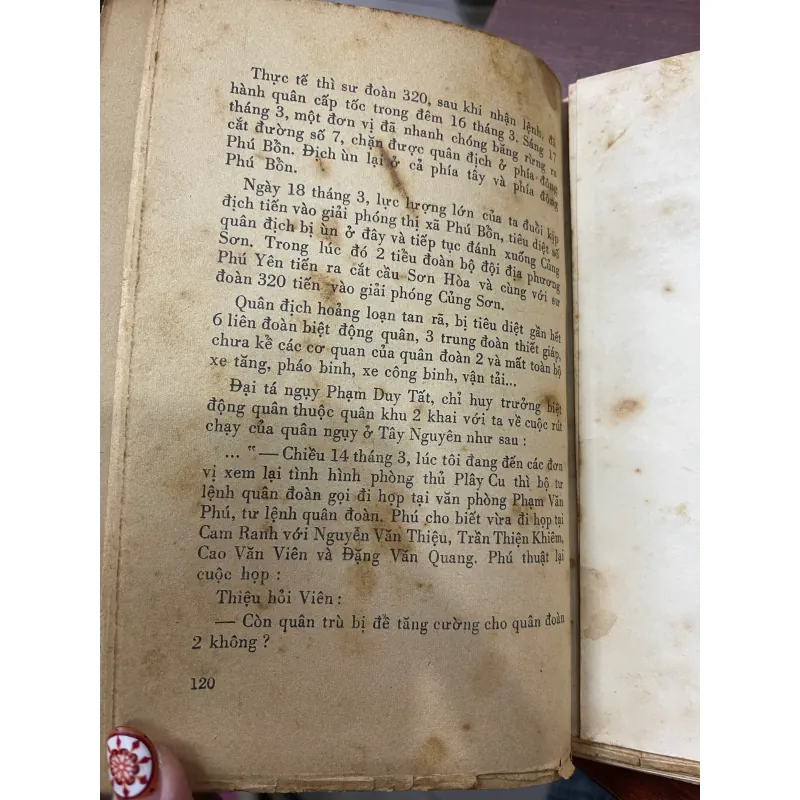 Thực tế thì sư đoàn 320, sau khi nhận lệnh, đã
hành quân cấp tốc trong đêm 16 tháng 3. Sáng 17
tháng 3, một đơn vị đã nhanh chóng băng rừng ra
cắt đường số 7, chặn được quân địch ở phía đông
Phú Bồn. Địch ùn lại ở cả phía tây và phía đông
Phú Bồn.
Ngày 18 tháng 3, lực lượng lớn của ta đuổi kịp
địch tiến vào giải phóng thị xã Phú Bồn, tiêu diệt số
quân địch bị ùn ở đây và tiếp tục đánh xuống Củng
Sơn. Trong lúc đó 2 tiểu đoàn bộ đội địa phương
Phú Yên tiến ra cắt cầu Sơn Hòa và cùng với sư
đoàn 320 tiến vào giải phóng Củng Sơn.
Quân địch hoảng loạn tan rã, bị tiêu diệt gần hết
6 liên đoàn biệt động quân, 3 trung đoàn thiết giáp,
chưa kể các cơ quan của quân đoàn 2 và mất toàn bộ
xe tăng, pháo binh, xe công binh, vận tải...
Đại tá ngụy Phạm Duy Tất, chỉ huy trưởng biệt
động quân thuộc quân khu 2 khai với ta về cuộc rút
chạy của quân ngụy ở Tây Nguyên như sau :
... "— Chiều 14 tháng 3, lúc tôi đang đến các đơn
vị xem lại tình hình phòng thủ Plây Cu thì bộ tư
lệnh quân đoàn gọi đi họp tại văn phòng Phạm Văn
Phú, tư lệnh quân đoàn. Phú cho biết vừa đi họp tại
Cam Ranh với Nguyễn Văn Thiệu, Trần Thiện Khiêm,
Cao Văn Viên và Đặng Văn Quang. Phú thuật lại
cuộc họp :
Thiệu hỏi Viên :
— Còn quân trù bị để tăng cường cho quân đoàn
2 không ?
120